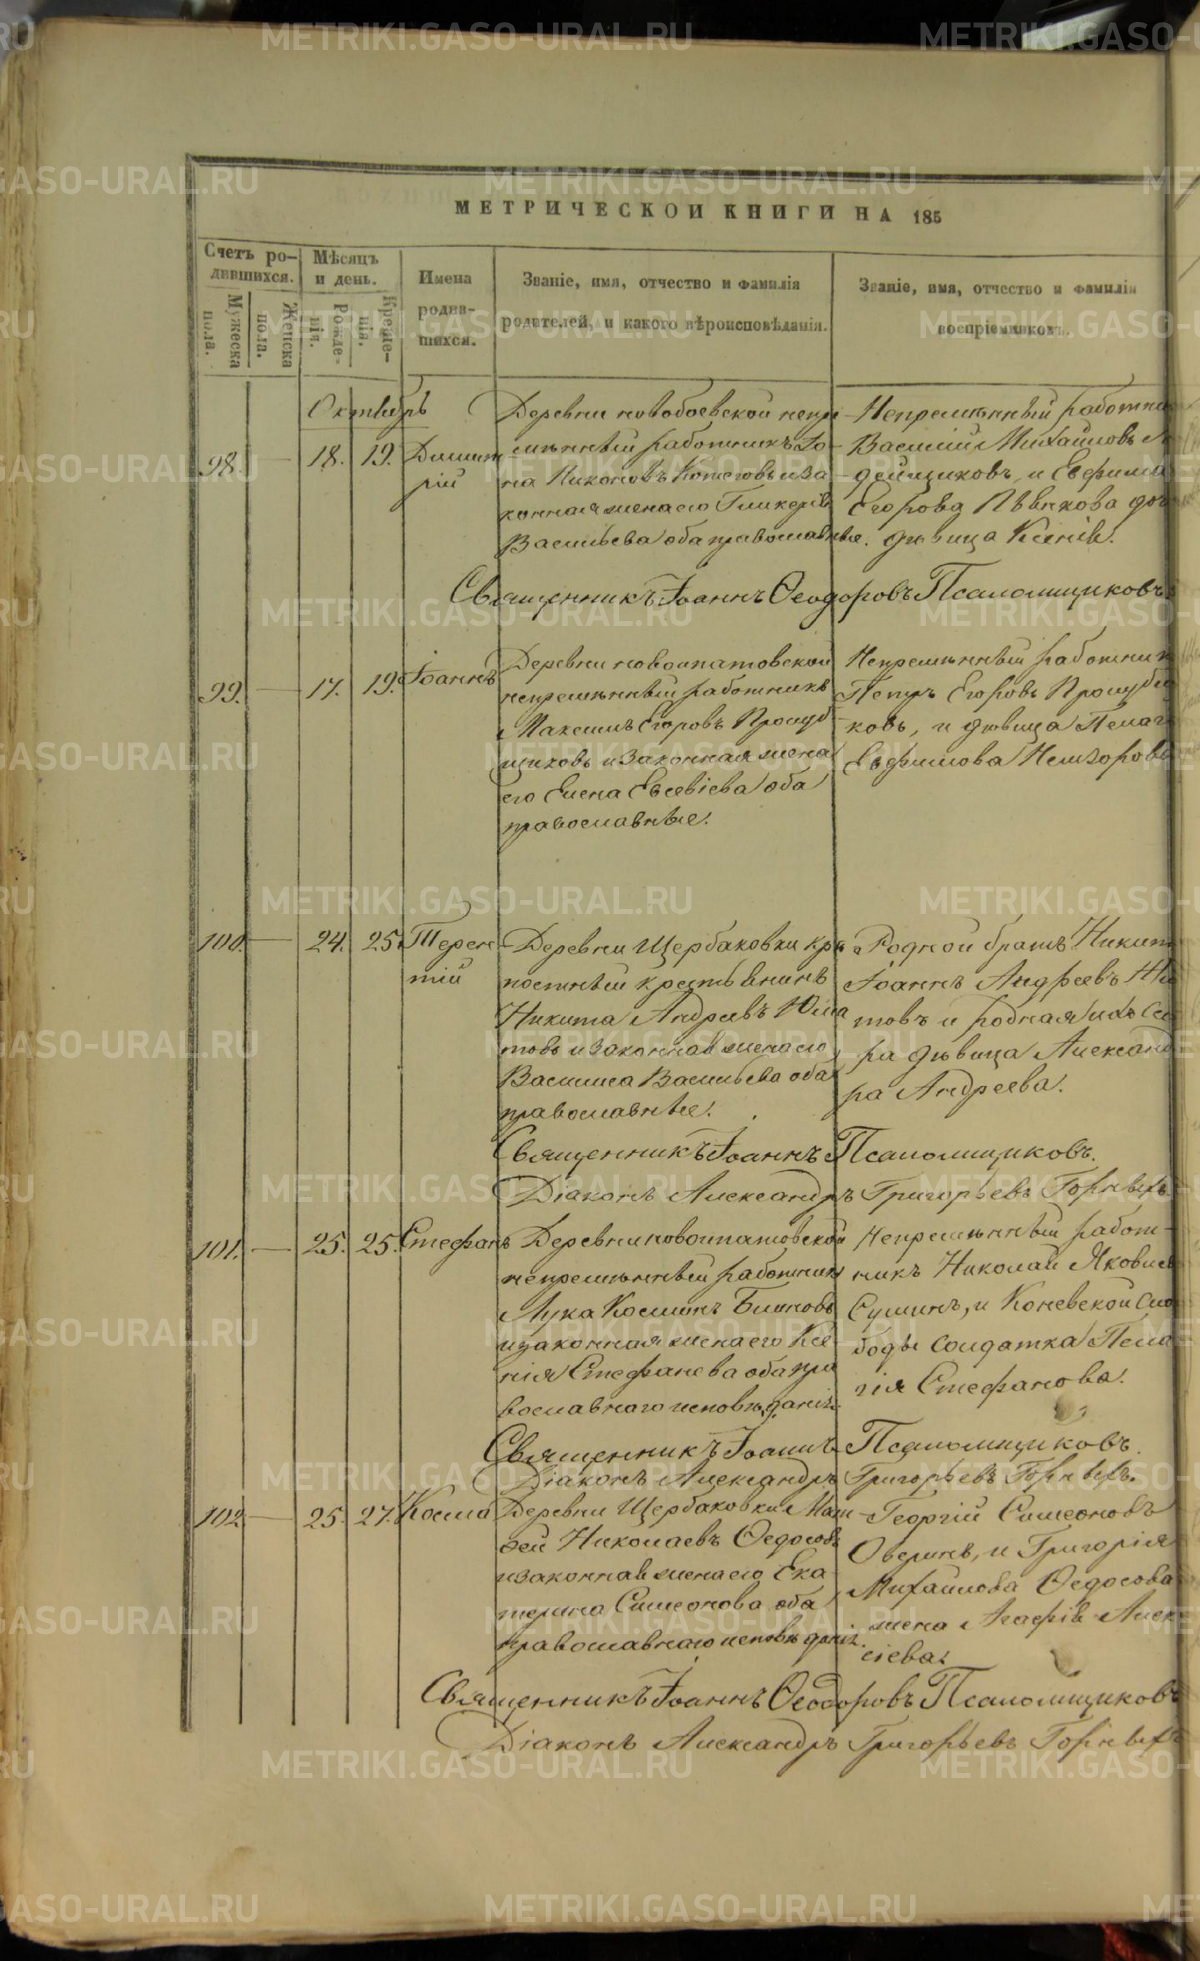 МЕТРИЧЕСКОЙ КНИГИ НА 185
Счетъ ро-
дившихся.
Мужеска
пола.
Женска
пола.
Мѣсяцъ
и день.
Рожде-
нія.
Креще-
нія.
Имена
родив-
шихся.
Званіе, имя, отчество и фамилія
родителей, и какого вѣроисповѣданія.
Званіе, имя, отчество и фамилія
воспріемниковъ.
Октябрь
98. 18. 19. Димит
рій
Деревни новобоевской непре
мѣнный работникъ Іо-
на Никоновъ и за
конная жена его Гликерія
Васильева оба православные.
Непремѣнный работни
Василій Михайловъ
и Евфимія
Егорова дочь
дѣвица Ксенія.
Священникъ Іоаннъ Ѳеодоровъ Псаломщиковъ
99. 17. 19. Іоаннъ
Деревни новоипатовской
непремѣнный работникъ
Максимъ Егоровъ
щиковъ и законная жена
его Елена Евсевіева оба
православные.
Непремѣнный работник
Петръ Егоровъ
ковъ, и дѣвица Пелаг
Евфимова
100. 24. 25. Терен
тій
Деревни Щербаковки крѣ
постный крестьянинъ
Никита Андреевъ
товъ и законная жена его
Василиса Васильева оба
православные.
Родной братъ Никит
Іоаннъ Андреевъ
товъ и родная ихъ сес
ра дѣвица Александ
ра Андреева.
Священникъ Іоаннъ Псаломщиковъ.
Діаконъ Александръ Григорьевъ Горныхъ
101. 25. 25. Стефанъ
Деревни новоипатовской
непремѣнный работникъ
Лука Косминъ Блиновъ
и законная жена его Ксе
нія Стефанева оба пра
вославнаго исповѣданія.
Непремѣнный работ-
никъ Николай Яковлев
Сушинъ, и Коневской Сло
боды солдатка Пела
гія Стефанова.
Священникъ Іоаннъ Псаломщиковъ.
Діаконъ Александръ Григорьевъ Горныхъ.
102. 25. 27. Косма
Деревни Щербаковки Мат
ѳей Николаевъ Ѳедосовъ
и законная жена его Ека
терина Симеонова оба
православнаго исповѣданія.
Георгій Симеоновъ
Оверинъ, и Григорія
Михайлова Ѳедосова
жена Агафія Алек
сіева.
Священникъ Іоаннъ Ѳеодоровъ Псаломщиковъ
Діаконъ Александръ Григорьевъ Горныхъ
METRIKI.GASO-URAL.RU